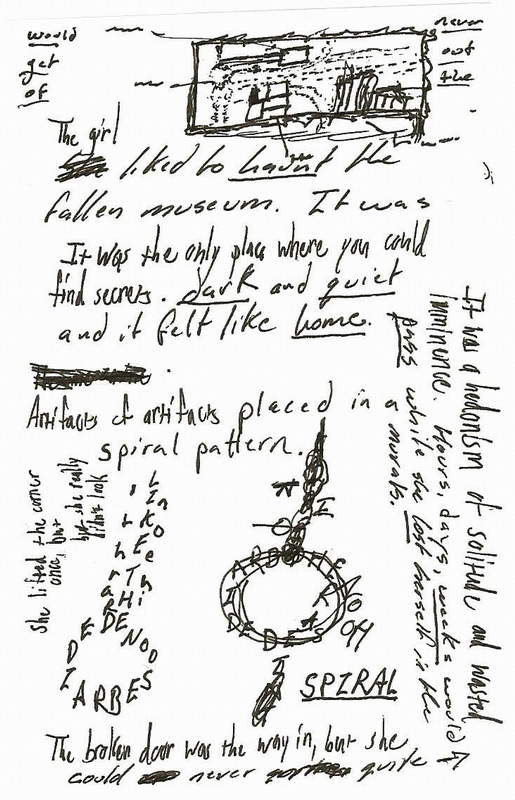 would
get
of
never
out
the
The girl
liked to haunt the
fallen museum. It was
It was the only place where you could
find secrets. dark and quiet
and it felt like home.
Artifacts of artifacts placed in a
spiral pattern.
It was a hedonism of solitude and wasted
imminence. Hours, days, weeks would
pass while she lost herself in the
murals.
she lifted the corner
once, but
but she really
didnt look
SPIRAL
The broken door was the way in, but she
could never quite